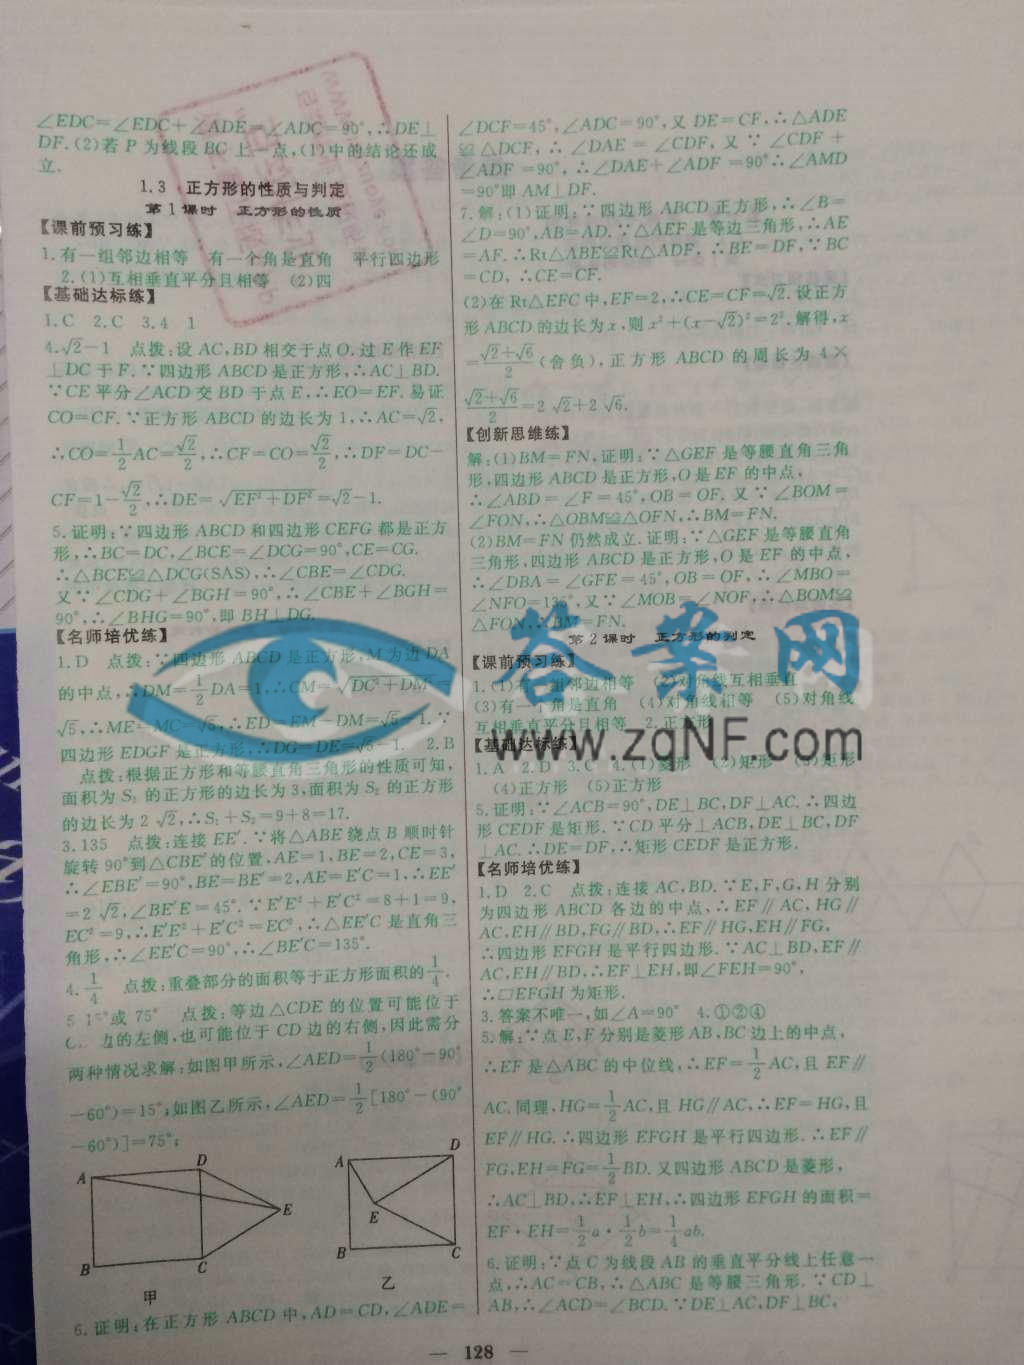 ∠EDC=∠EDC+∠ADE=∠ADC=90°,∴DE⊥
DF.(2)若 P 为线段 BC 上一点,(1)中的结论还成
立.
1.3 正方形的性质与判定
第1课时 正方形的性质
【课前预习练】
1.有一组邻边相等 有一个角是直角 平行四边形
2.(1)互相垂直平分且相等 (2)四
【基础达标练】
1.C 2.C 3.4 1
4.√2-1 点拨:设 AC,BD 相交于点 O.过 E 作 EF
⊥DC 于 F.∵四边形 ABCD 是正方形,∴AC⊥BD.
∵CE 平分∠ACD 交 BD 于点 E,∴EO=EF.易证
CO=CF.∵正方形 ABCD 的边长为 1,∴AC=√2,
∴CO=1/2AC=√2/2,∴CF=CO=√2/2,∴DF=DC-
CF=1-√2/2,∴DE=√(EF²+DF²)=√2-1.
5.证明:∵四边形 ABCD 和四边形 CEFG 都是正方
形,∴BC=DC,∠BCE=∠DCG=90°,CE=CG.
∴△BCE≌△DCG(SAS),∴∠CBE=∠CDG.
又∵∠CDG+∠BGH=90°,∴∠CBE+∠BGH=
90°,∴∠BHG=90°,即 BH⊥DG.
【名师培优练】
1.D 点拨:∵四边形 ABCD 是正方形,M 为边 DA
的中点,∴DM=1/2DA=1,∴CM=√(DC²+DM²)=
√5,∴ME=MC=√5,∴ED=EM-DM=√5-1.∵
四边形 EDGF 是正方形,∴DG=DE=√5-1. 2.B
点拨:根据正方形和等腰直角三角形的性质可知,
面积为 S₁ 的正方形的边长为 3,面积为 S₂ 的正方形
的边长为 2√2,∴S₁+S₂=9+8=17.
3.135 点拨:连接 EE′.∵将△ABE 绕点 B 顺时针
旋转 90°到△CBE′的位置,AE=1,BE=2,CE=3,
∴∠EBE′=90°,BE=BE′=2,AE=E′C=1,∴EE′
=2√2,∠BE′E=45°.∵E′E²+E′C²=8+1=9,
EC²=9,∴E′E²+E′C²=EC²,∴△EE′C 是直角三
角形,∴∠EE′C=90°,∴∠BE′C=135°.
4.1/4 点拨:重叠部分的面积等于正方形面积的1/4.
5 15°或 75° 点拨:等边△CDE 的位置可能位于
边的左侧,也可能位于 CD 边的右侧,因此需分
两种情况求解:如图甲所示,∠AED=1/2(180°-90°
-60°)=15°;如图乙所示,∠AED=1/2[180°-(90°
-60°)]=75°;
A D E B C 甲
A D E B C 乙
6.证明:在正方形 ABCD 中,AD=CD,∠ADE=
∠DCF=45°,∠ADC=90°,又 DE=CF,∴△ADE
≌△DCF,∴∠DAE=∠CDF,又∵∠CDF+
∠ADF=90°,∴∠DAE+∠ADF=90°∴∠AMD
=90°即 AM⊥DF.
7.解:(1)证明:∵四边形 ABCD 正方形,∴∠B=
∠D=90°,AB=AD.∵△AEF 是等边三角形,∴AE
=AF.∴Rt△ABE≌Rt△ADF,∴BE=DF,∵BC
=CD,∴CE=CF.
(2)在 Rt△EFC 中,EF=2,∴CE=CF=√2.设正方
形 ABCD 的边长为 x,则 x²+(x-√2)²=2².解得,x
=(√2+√6)/2(舍负),正方形 ABCD 的周长为 4×
(√2+√6)/2=2√2+2√6.
【创新思维练】
解:(1)BM=FN,证明:∵△GEF 是等腰直角三角
形,四边形 ABCD 是正方形,O 是 EF 的中点,
∴∠ABD=∠F=45°,OB=OF.又∵∠BOM=
∠FON,∴△OBM≌△OFN,∴BM=FN.
(2)BM=FN 仍然成立.证明:∵△GEF 是等腰直角
三角形,四边形 ABCD 是正方形,O 是 EF 的中点,
∴∠DBA=∠GFE=45°,OB=OF,∴∠MBO=
∠NFO=135°,又∵∠MOB=∠NOF,∴△BOM≌
△FON,∴BM=FN.
第2课时 正方形的判定
【课前预习练】
1.(1)有一组邻边相等 (2)对角线互相垂直
(3)有一个角是直角 (4)对角线相等 (5)对角线
互相垂直平分且相等 2.正方形
【基础达标练】
1.A 2.D 3.C 4.(1)菱形 (2)矩形 (3)矩形
(4)正方形 (5)正方形
5.证明:∵∠ACB=90°,DE⊥BC,DF⊥AC.∴四边
形 CEDF 是矩形.∵CD 平分⊥ACB,DE⊥BC,DF
⊥AC.∴DE=DF,∴矩形 CEDF 是正方形.
【名师培优练】
1.D 2.C 点拨:连接 AC,BD.∵E,F,G,H 分别
为四边形 ABCD 各边的中点,∴EF∥AC,HG∥
AC,EH∥BD,FG∥BD,∴EF∥HG,EH∥FG,
∴四边形 EFGH 是平行四边形.∵AC⊥BD,EF∥
AC,EH∥BD,∴EF⊥EH,即∠FEH=90°,
∴□EFGH 为矩形.
3.答案不唯一,如∠A=90° 4.①②④
5.解:∵点 E,F 分别是菱形 AB,BC 边上的中点,
∴EF 是△ABC 的中位线,∴EF=1/2AC,且 EF∥
AC.同理,HG=1/2AC,且 HG∥AC,∴EF=HG,且
EF∥HG.∴四边形 EFGH 是平行四边形.∴EF∥
FG,EH=FG=1/2BD.又四边形 ABCD 是菱形,
∴AC⊥BD,∴EF⊥EH,∴四边形 EFGH 的面积=
EF·EH=1/2a·1/2b=1/4ab.
6.证明:∵点 C 为线段 AB 的垂直平分线上任意一
点,∴AC=CB,∴△ABC 是等腰三角形.∵CD⊥
AB,∴∠ACD=∠BCD.∵DE⊥AC,DF⊥BC,
— 128 —
答案网
www.zqNF.com